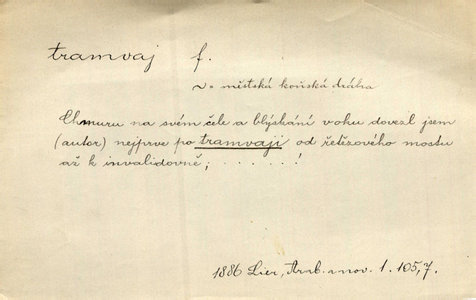 tramvaj f.
v. městská koňská dráha
Chmuru na svém čele a blýskání v oku dovezl jsem
(autor) nejprve po tramvaji od řetězového mostu
až k invalidovně; . . . . . . !
1886 Lier, Arnb. nov. 1. 105,7.